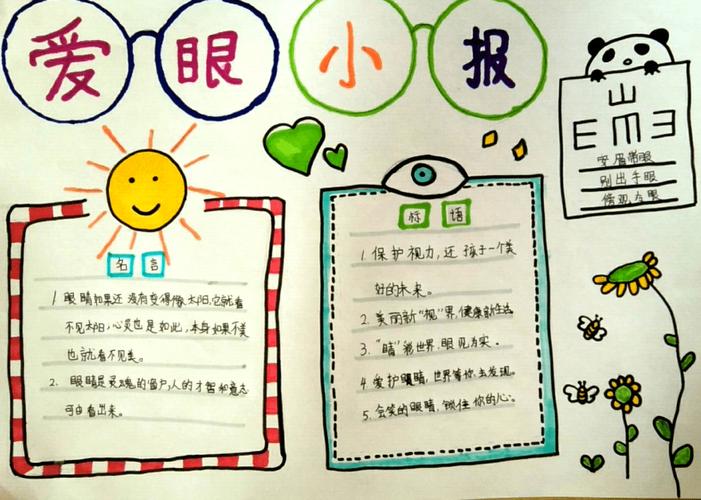 爱眼小报
山
E m ヨ
穿眉带眼
别出手眼
傍观者黑
名言
1 眼睛如果还没有变得像太阳,它就看
不见太阳,心灵也是如此,本身如果不美
也就看不见美。
2. 眼睛是灵魂的窗户,人的才智和意志
可由看出来。
标语
1. 保护视力,还孩子一个美
好的未来。
2. 美丽新“视”界,健康新生活
3. “睛”彩世界,眼见为实。
4 爱护眼睛,世界等你去发现。
5. 会笑的眼睛,锁住你的心。